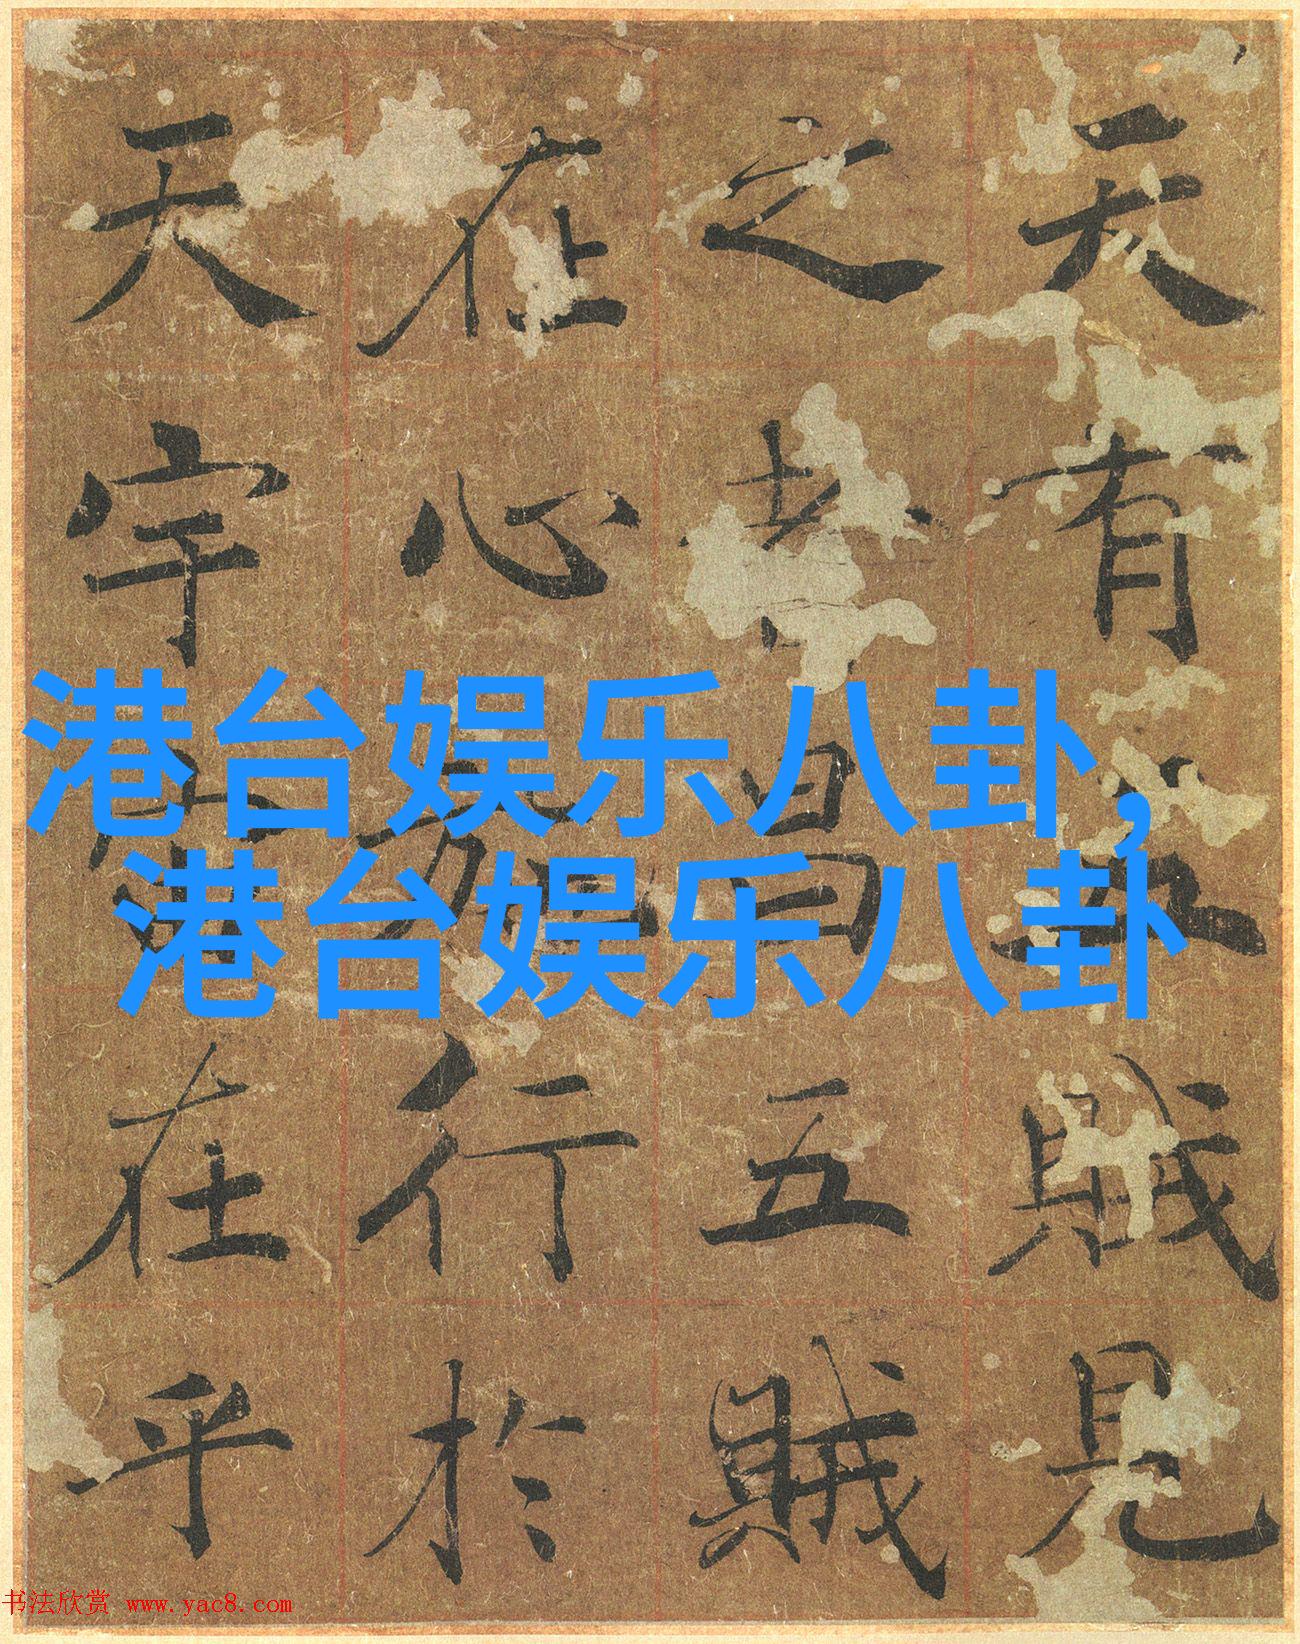 天有五賊見
之者昌五賊
在心施行於
天宇宙在乎
港台娱乐八卦,
港台娱乐八卦
书法欣赏 www.yac8.com